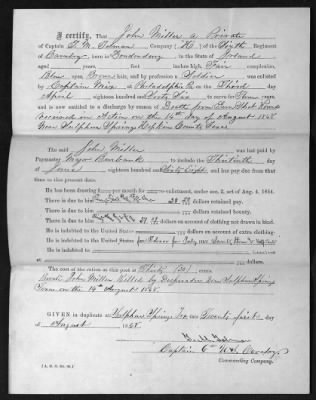 I certify, That John Miller a Private
of Captain T. M. Tolman Company (D.) of the Sixth Regiment
of Cavalry, born in Londonderry in the State of Ireland
aged years, feet inches high, Fair complexion,
Blue eyes, Brown hair, and by profession a Soldier was enlisted
by Captain at Philadelphia Pa on the Third day
April eighteen hundred and Sixty Six to serve Three years,
and is now entitled to a discharge by reason of Death from Gun Shot Wound
received in Action on the 14th day of August 1868
Near Sulphur Springs Hopkins County Texas
The said John Miller was last paid by
Paymaster Major Burbank to include the Thirtieth day
of June eighteen hundred Sixty Eight and has pay due from that
time to the present date.
He has been drawing per month for enlistment, under sec. 2, act of Aug. 4, 1854.
There is due to him dollars retained pay.
There is due to him dollars retained bounty.
There is due to him dollars on account of clothing not drawn in kind.
He is indebted to the United States dollars on account of extra clothing.
He is indebted to the United States for Tobacco for July 1868
He is indebted to
The cost of the ration at this post is Thirty (30) cents.
Private John Miller Killed by Desperados Near Sulphur Springs
Texas on the 14th August 1868.
GIVEN in duplicate at Sulphur Springs Tex this Twenty first day
of August 1868.
Captain 6th U.S. Cavalry,
Commanding Company.